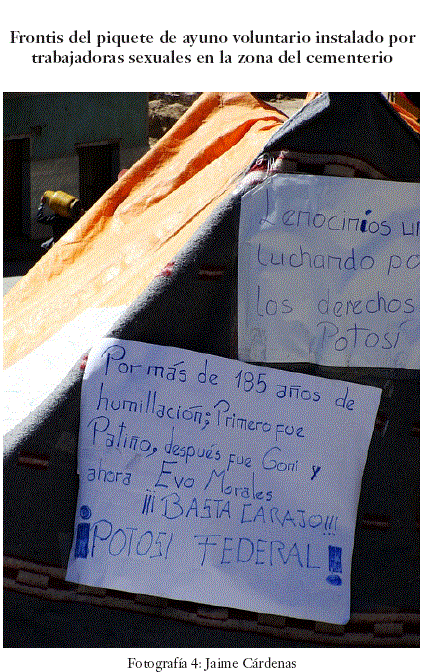 Frontis del piquete de ayuno voluntario instalado por
trabajadoras sexuales en la zona del cementerio
Lenocinios un
luchando po
los derechos
Potosí
Por más de 185 años de
humillación; Primero fue
Patiño, después fue Goni y
ahora Evo Morales
¡¡¡BASTA CARAJO!!!
¡POTOSI FEDERAL!
Fotografía 4: Jaime Cárdenas